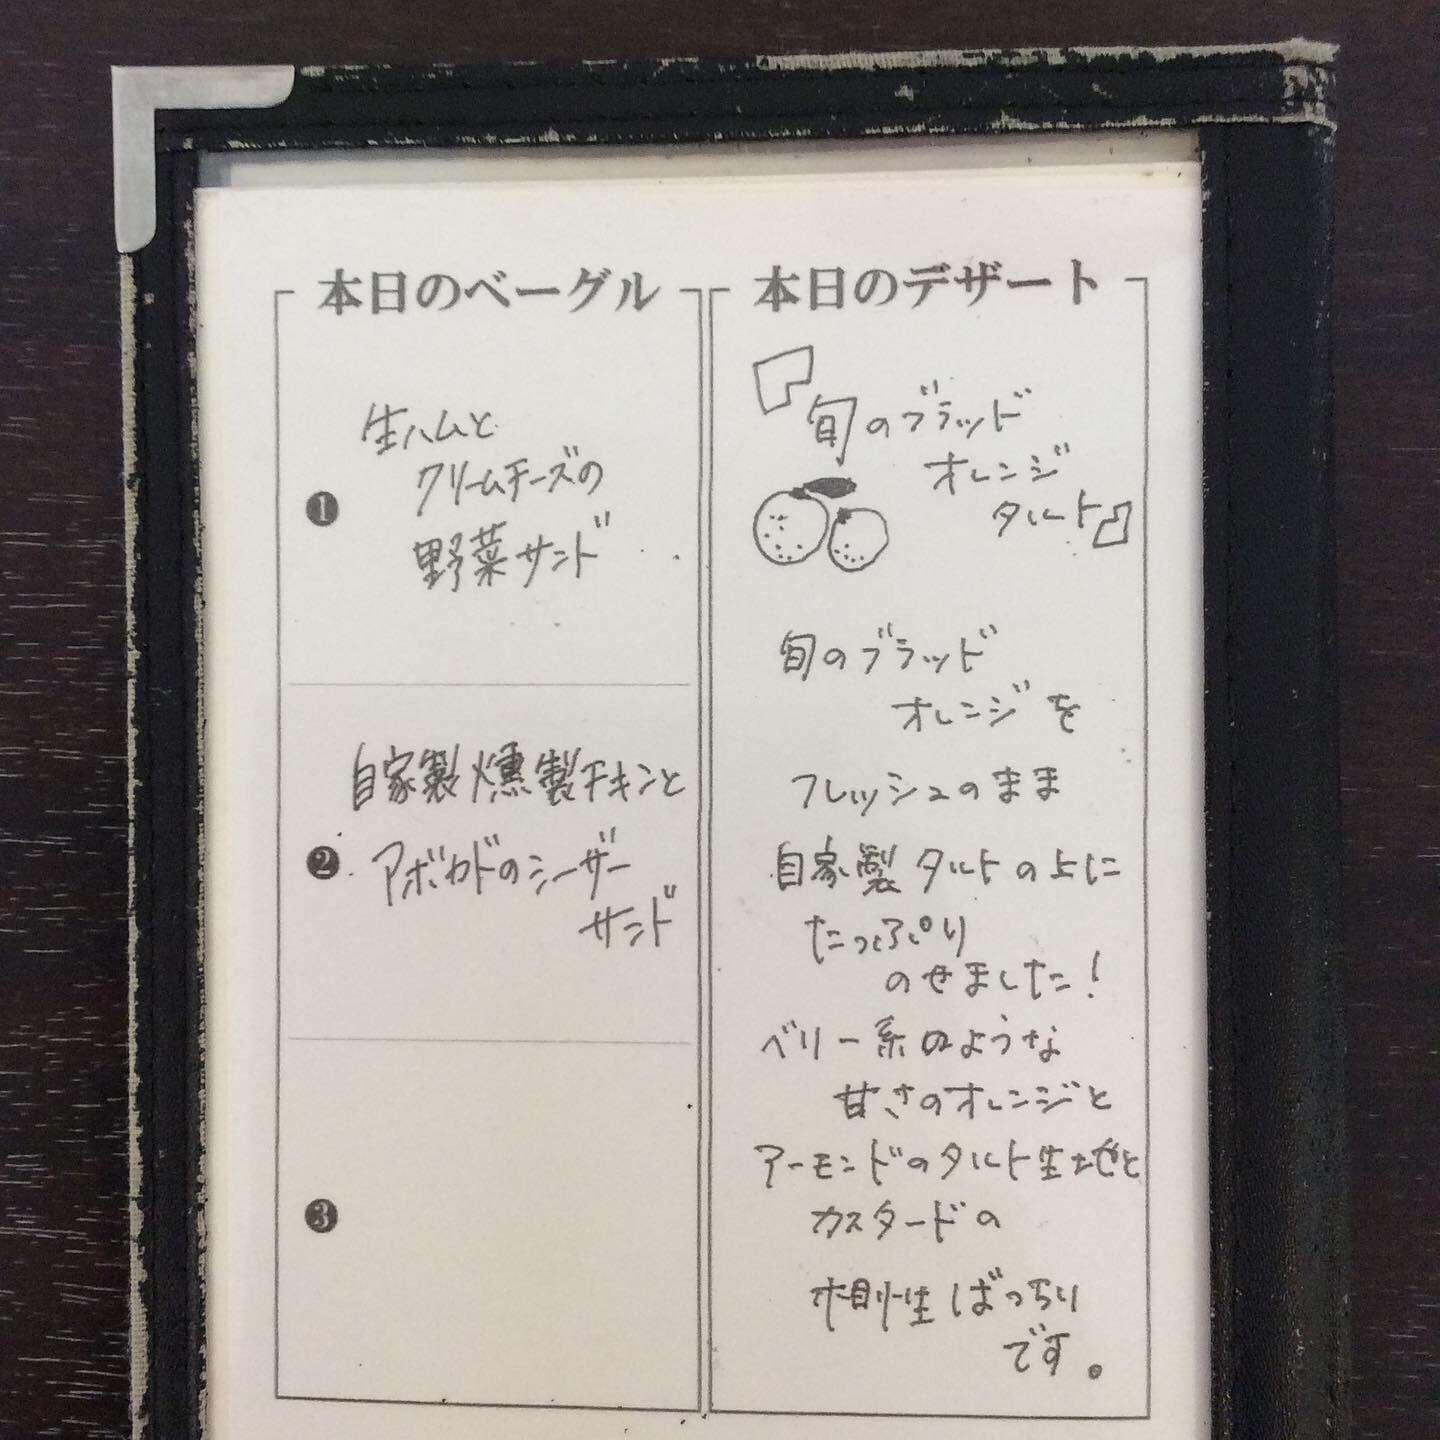 本日のベーグル
❶
生ハムと
クリームチーズの
野菜サンド
❷
自家製燻製チキンと
アボカドのシーザー
サンド
❸
本日のデザート
『旬のブラッド
オレンジ
タルト』
旬のブラッド
オレンジを
フレッシュのまま
自家製タルトの上に
たっぷり
のせました!
ベリー系のような
甘さのオレンジと
アーモンドのタルト生地と
カスタードの
相性ばっちり
です。